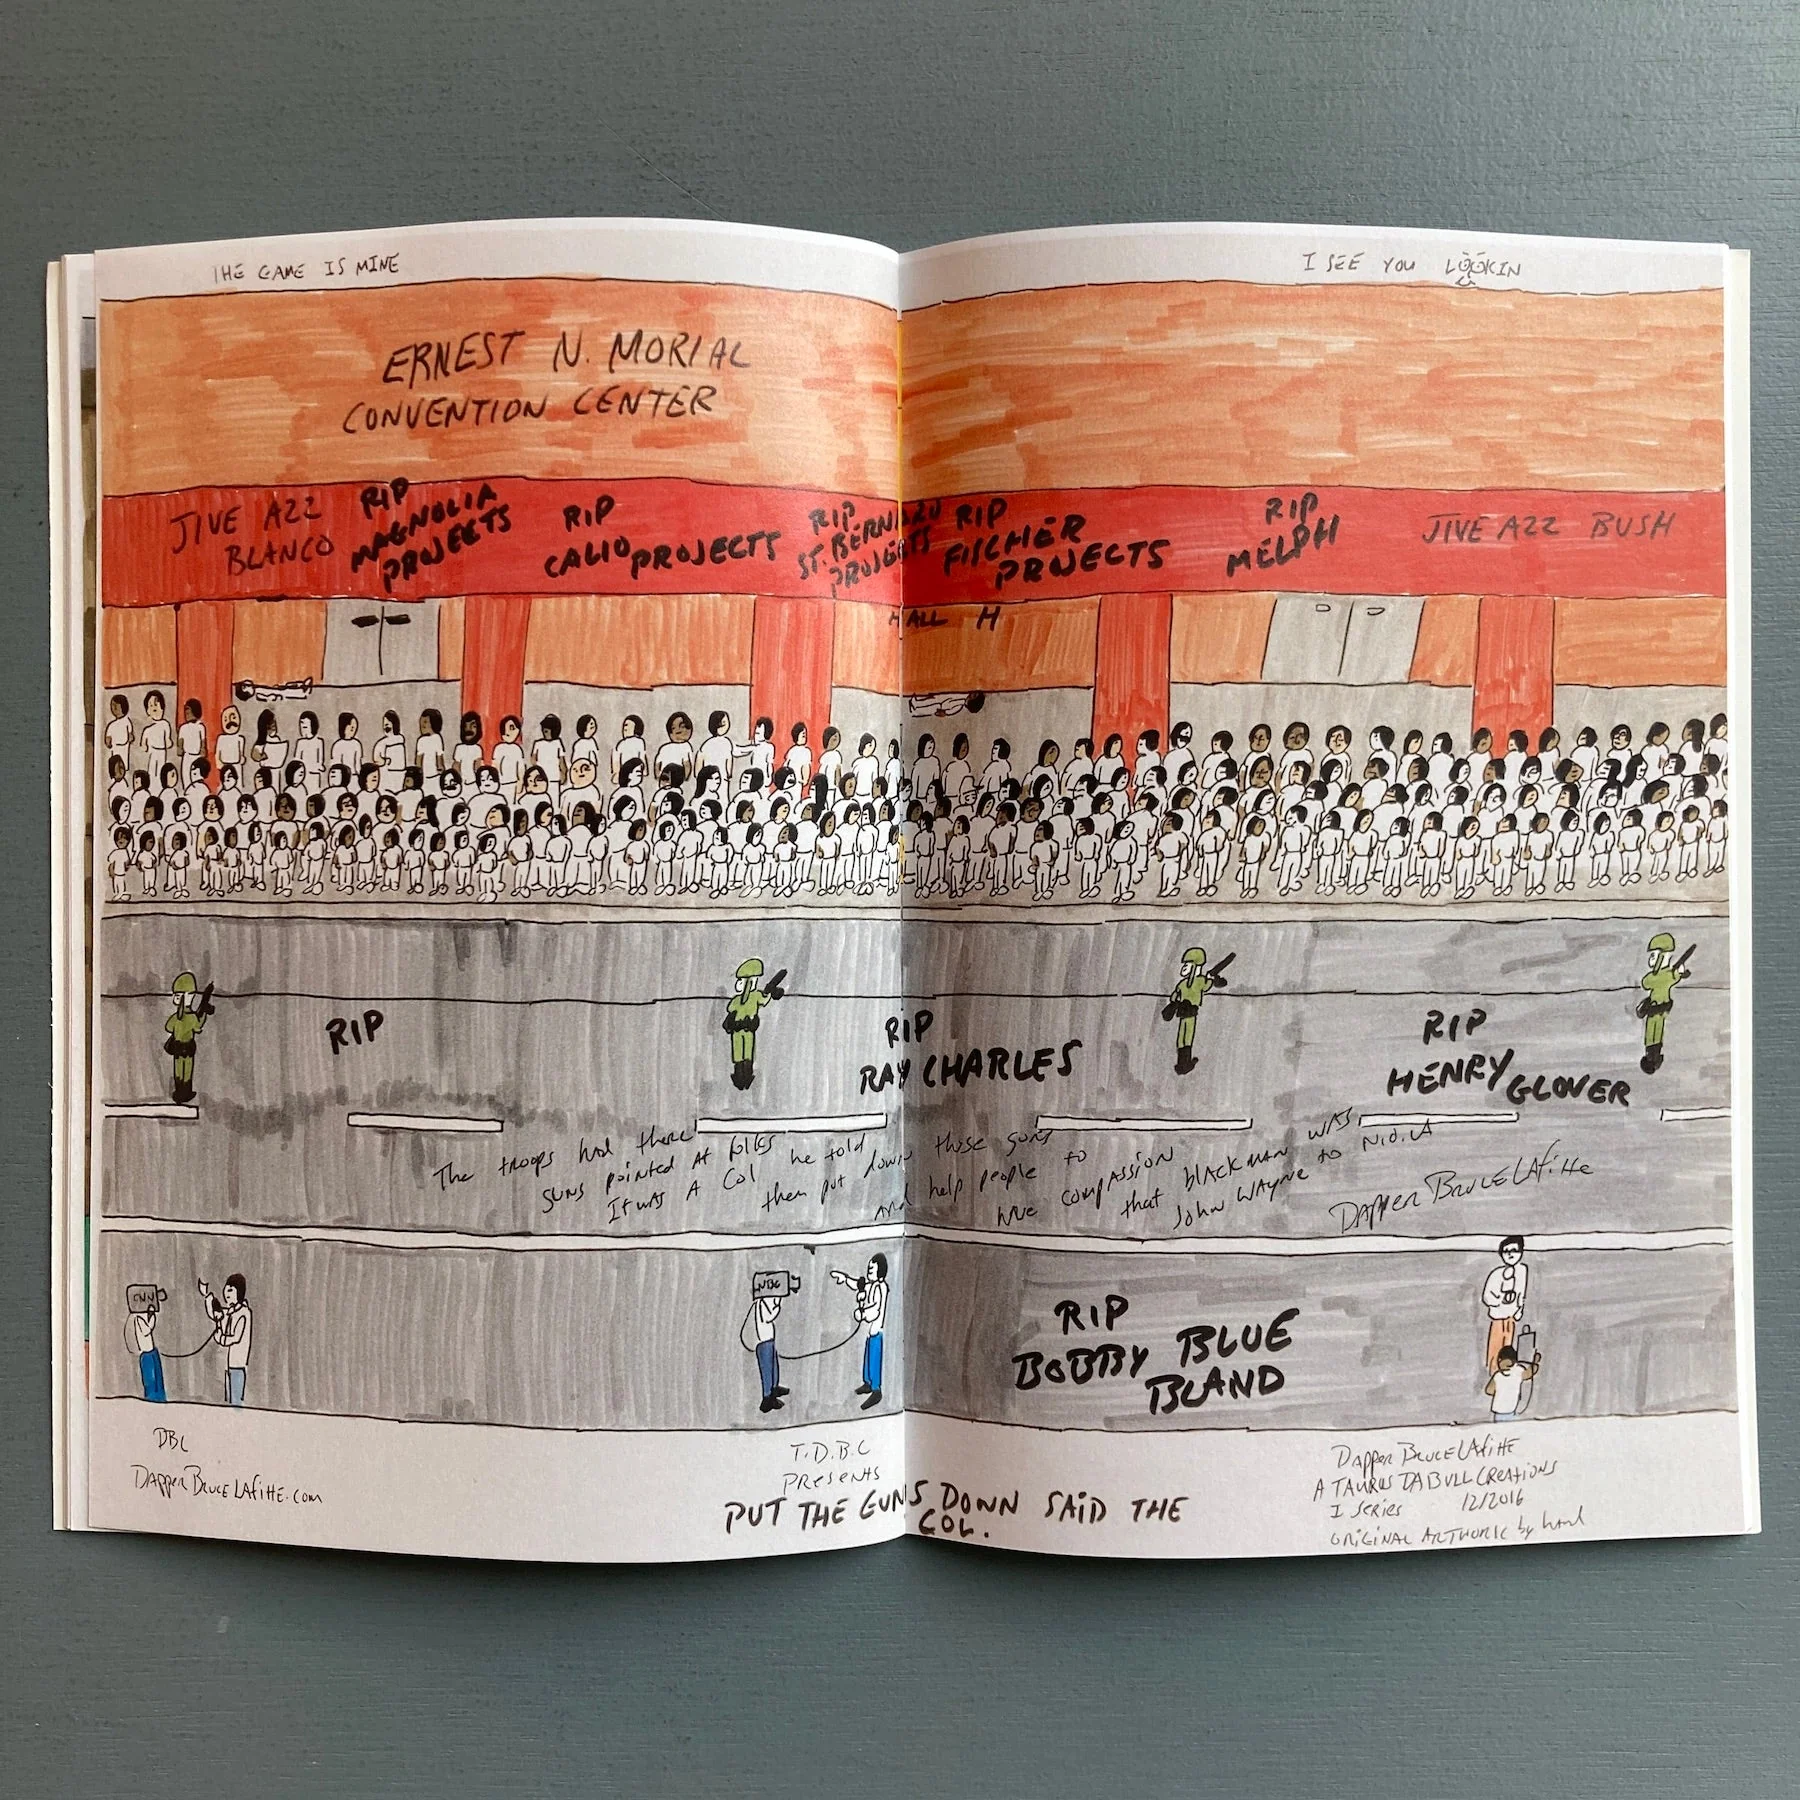 THE GAME IS MINE
I SEE YOU LOOKIN
ERNEST N. MORIAL
CONVENTION CENTER
JIVE AZZ
BLANCO
RIP
MAGNOLIA
PROJECTS
RIP
CALIO PROJECTS
RIP
ST. BERNARD
PROJECTS
RIP
FISCHER
PROJECTS
RIP
MELPH
JIVE AZZ BUSH
HALL H
RIP
RIP
RAY CHARLES
RIP
HENRY GLOVER
The troops had there
guns pointed at folks
It was a Col he told
them put down those guns
and help people to
have compassion
that black man was
John Wayne to N.O.LA
Dapper Bruce Lafitte
CNN
NBC
RIP
BOBBY BLUE
BLAND
DBL
Dapper Bruce Lafitte.com
T.D.B.C
PRESENTS
PUT THE GUNS DOWN SAID THE
COL.
Dapper Bruce Lafitte
A TAURUS DABULL CREATIONS
I series 12/2016
ORIGINAL ARTWORK by hand